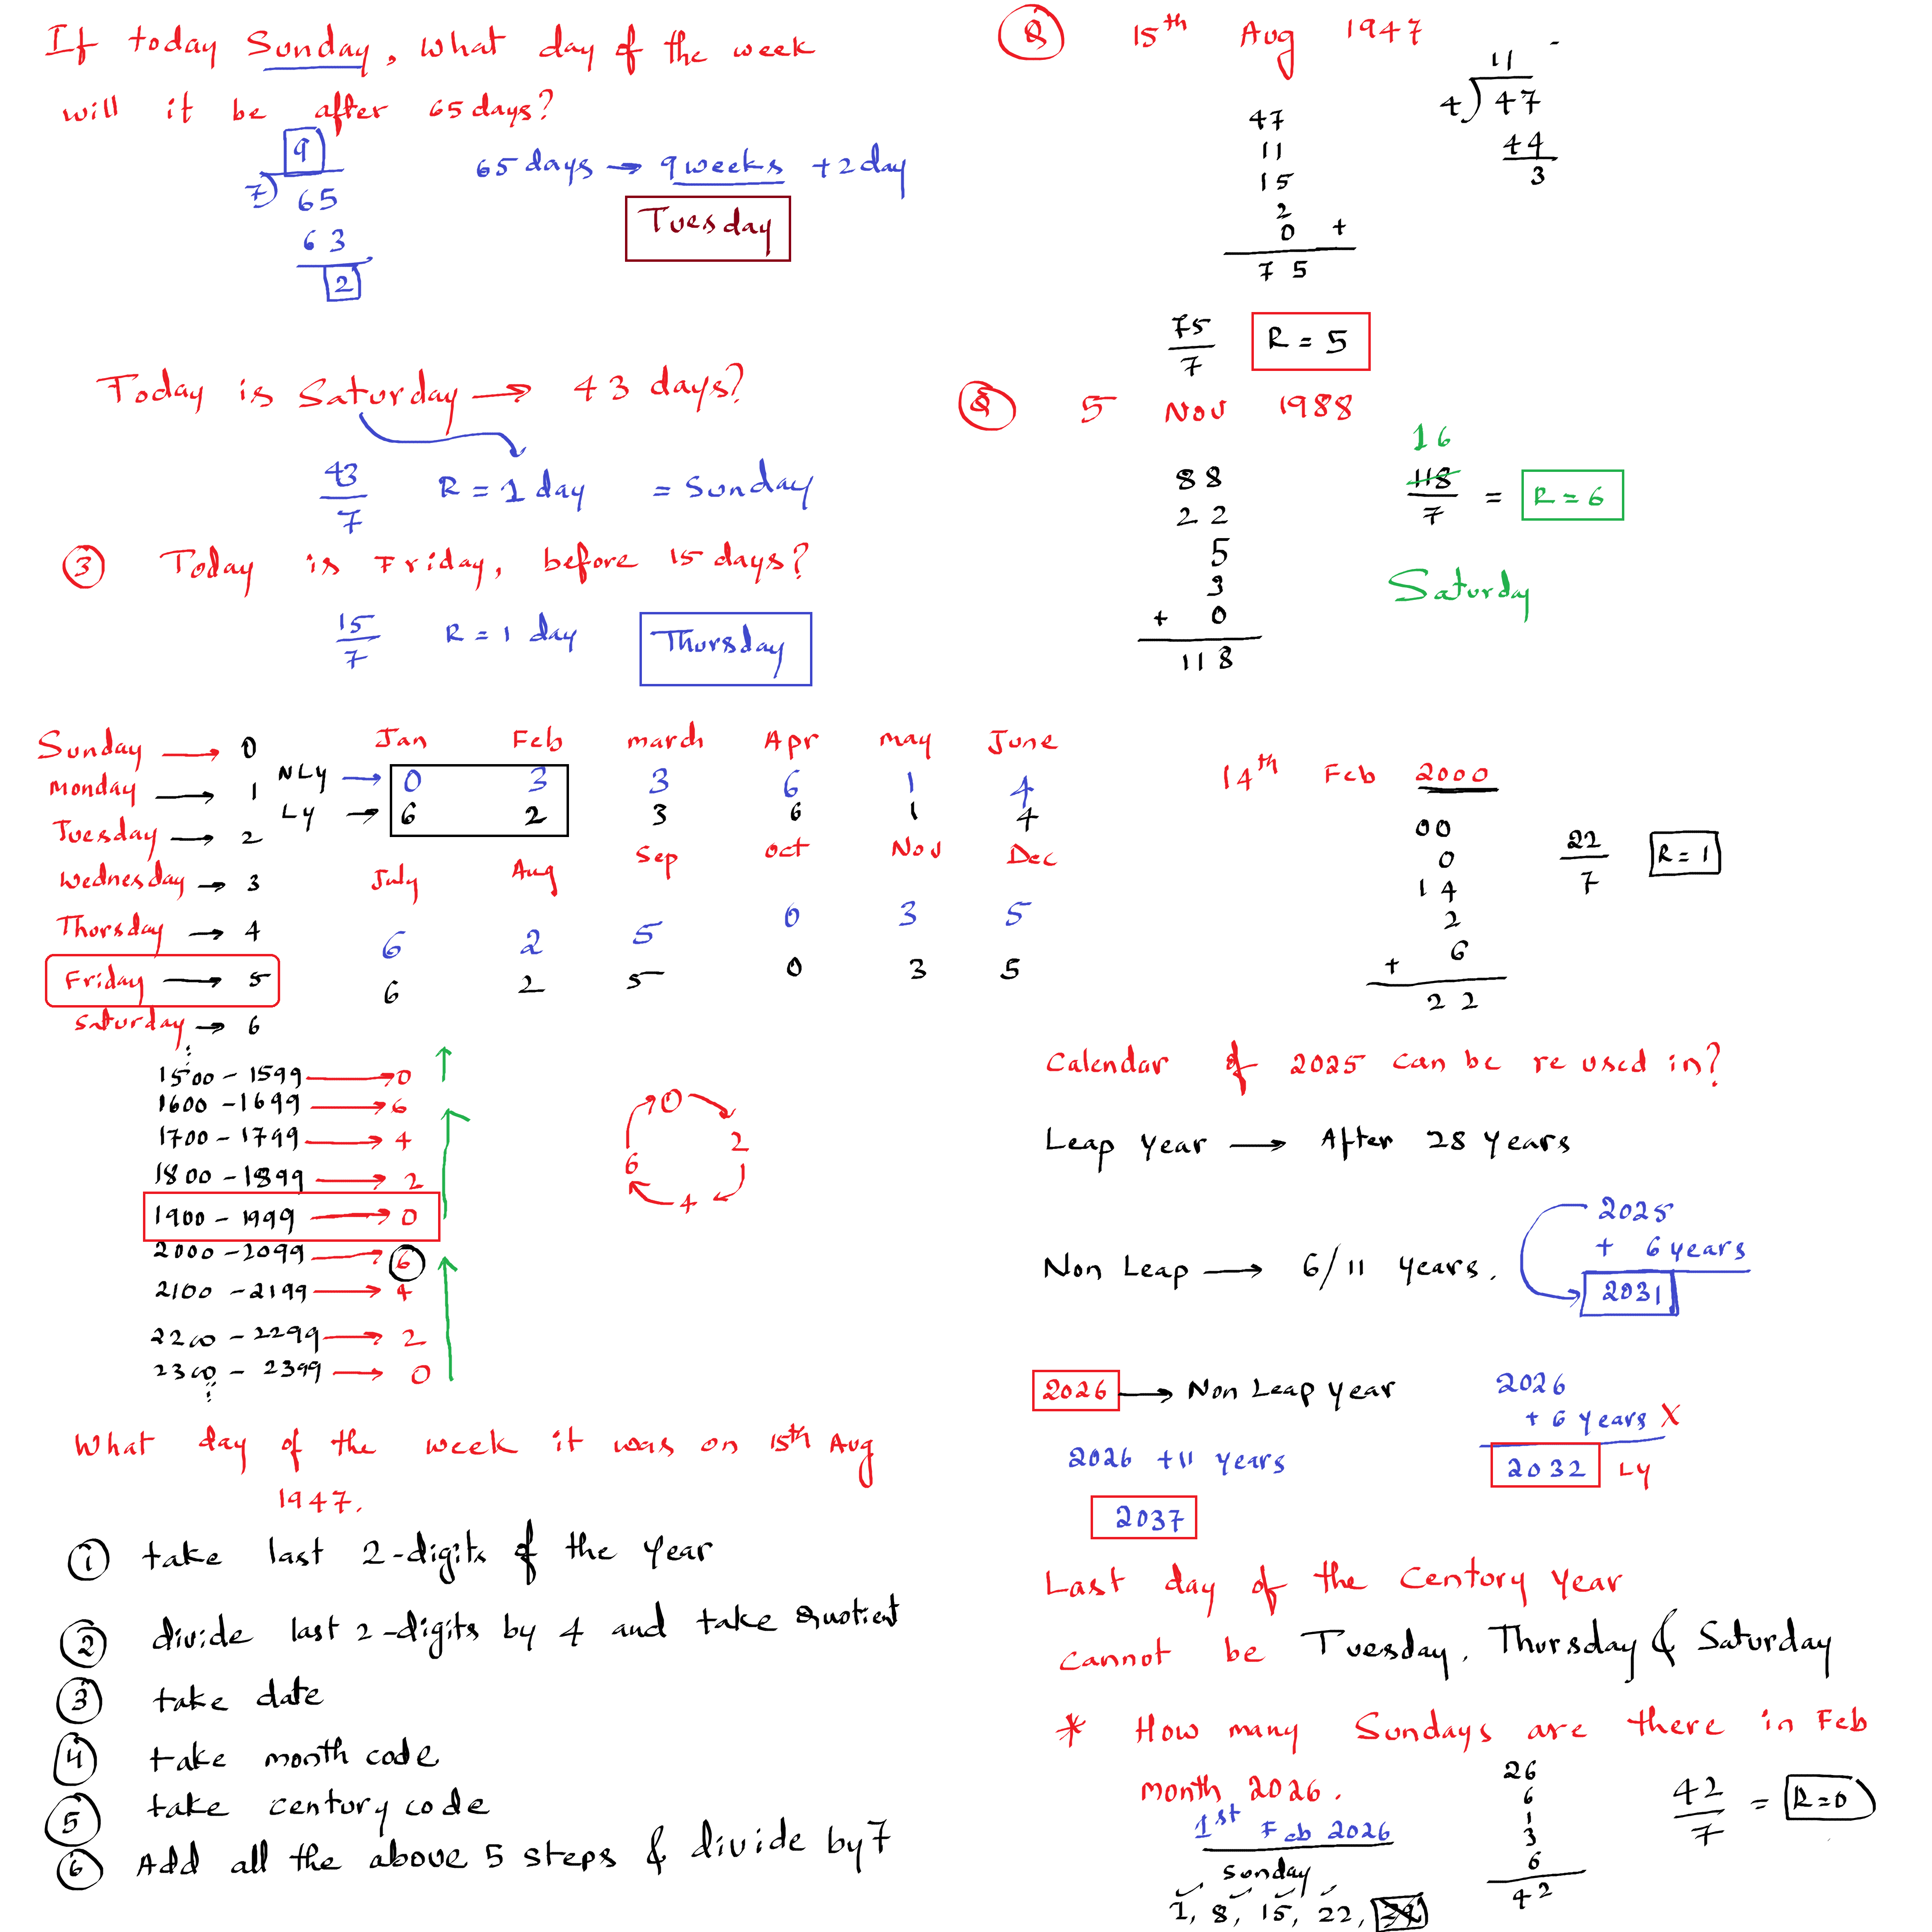 If today Sunday, what day of the week
will it be after 65 days?
9
7) 65
63
2
65 days → 9 weeks + 2 day
Tuesday
Today is Saturday → 43 days?
43/7 R = 1 day = Sunday
③ Today is Friday, before 15 days?
15/7 R = 1 day Thursday
Sunday → 0
Monday → 1
Tuesday → 2
Wednesday → 3
Thursday → 4
Friday → 5
Saturday → 6
Jan Feb march Apr may June
NLy → 0 3 3 6 1 4
Ly → 6 2 3 6 1 4
July Aug Sep oct Nov Dec
6 2 5 0 3 5
6 2 5 0 3 5
1500 - 1599 → 0
1600 - 1699 → 6
1700 - 1799 → 4
1800 - 1899 → 2
1900 - 1999 → 0
2000 - 2099 → 6
2100 - 2199 → 4
2200 - 2299 → 2
2300 - 2399 → 0
0 → 2
6 ← 4
What day of the week it was on 15th Aug
1947.
① take last 2-digits of the year
② divide last 2-digits by 4 and take Quotient
③ take date
④ take month code
⑤ take century code
⑥ Add all the above 5 steps & divide by 7
Q 15th Aug 1947
47
11
15
2
0 +
75
11
4) 47
44
3
75/7 R = 5
Q 5 Nov 1988
88
22
5
3
+ 0
118
16
118/7 = R = 6
Saturday
14th Feb 2000
00
0
14
2
+ 6
22
22/7 R = 1
Calendar of 2025 can be re used in?
Leap year → After 28 years
Non Leap → 6/11 years.
2025
+ 6 years
2031
2026 → Non Leap year
2026 + 11 years
2037
2026
+ 6 years X
2032 Ly
Last day of the century year
cannot be Tuesday, Thursday & Saturday
* How many Sundays are there in Feb
month 2026.
1st Feb 2026
Sunday
1, 8, 15, 22,
26
6
1
3
6
42
42/7 = R=0